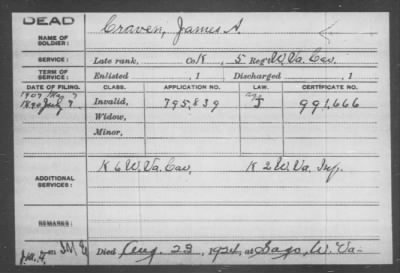 DEAD
NAME OF SOLDIER: Craven, James A.
SERVICE: Late rank, Co K, 5 Reg't W. Va. Cav.
TERM OF SERVICE: Enlisted , 1 Discharged , 1
DATE OF FILING. CLASS. APPLICATION NO. LAW. CERTIFICATE NO.
1907 May 7
1890 July 7 Invalid, 795,839 J 991,666
Widow,
Minor,
ADDITIONAL SERVICES: K 6 W. Va. Cav, K 2 W. Va. Inf.
REMARKS:
Died Aug. 23, 1924, at Sago, W. Va.